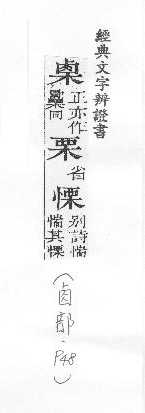 經典文字辨證書
㮚正亦作𣡷同栗省慄別詩惴惴其慄
(卤部.P48)